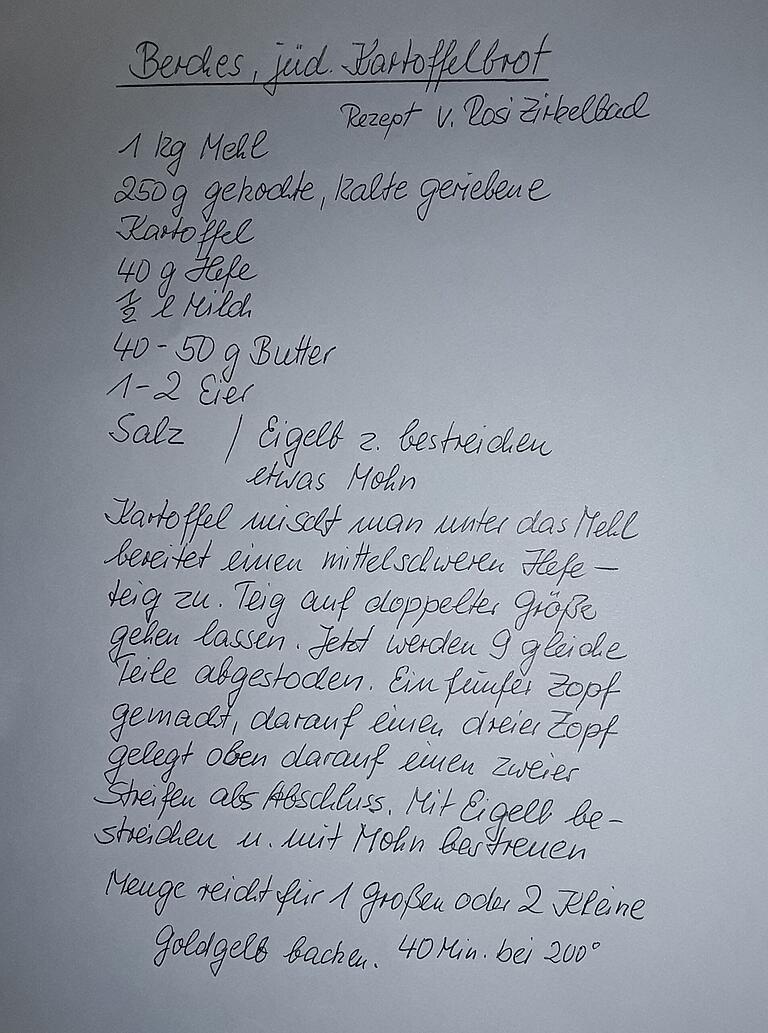 Berches, jüd. Kartoffelbrot
Rezept v. Rosi Zirkelbad
1 kg Mehl
250 g gekochte, kalte geriebene
Kartoffel
40 g Hefe
½ l Milch
40 - 50 g Butter
1 - 2 Eier
Salz / Eigelb z. bestreichen
etwas Mohn
Kartoffel mischt man unter das Mehl
bereitet einen mittelschweren Hefe –
teig zu. Teig auf doppelter Größe
gehen lassen. Jetzt werden 9 gleiche
Teile abgestochen. Ein fünfer Zopf
gemacht, darauf einen dreier Zopf
gelegt oben darauf einen zweier
Streifen als Abschluss. Mit Eigelb be –
streichen u. mit Mohn bestreuen
Menge reicht für 1 Großen oder 2 Kleine
Goldgelb backen. 40 Min. bei 200°